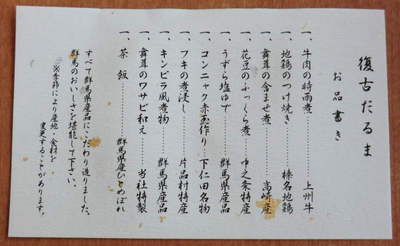 復古だるま
お品書き
一、牛肉の時雨煮 上州牛
一、地鶏のつけ焼き 榛名地鶏
一、舞茸の含ませ煮 高崎産
一、花豆のふっくら煮 中之条特産
一、うずら塩ゆで 群馬県産品
一、コンニャク赤蒸作り 下仁田名物
一、フキの煮浸し 片品村特産
一、キンピラ風煮物 群馬県産品
一、舞茸のワサビ和え 当社特製
一、茶飯 群馬県産ひとめぼれ
すべて群馬県産品にこだわり造りました。
群馬のおいしさを堪能して下さい。
※季節により産地・食材を
変更することがあります。